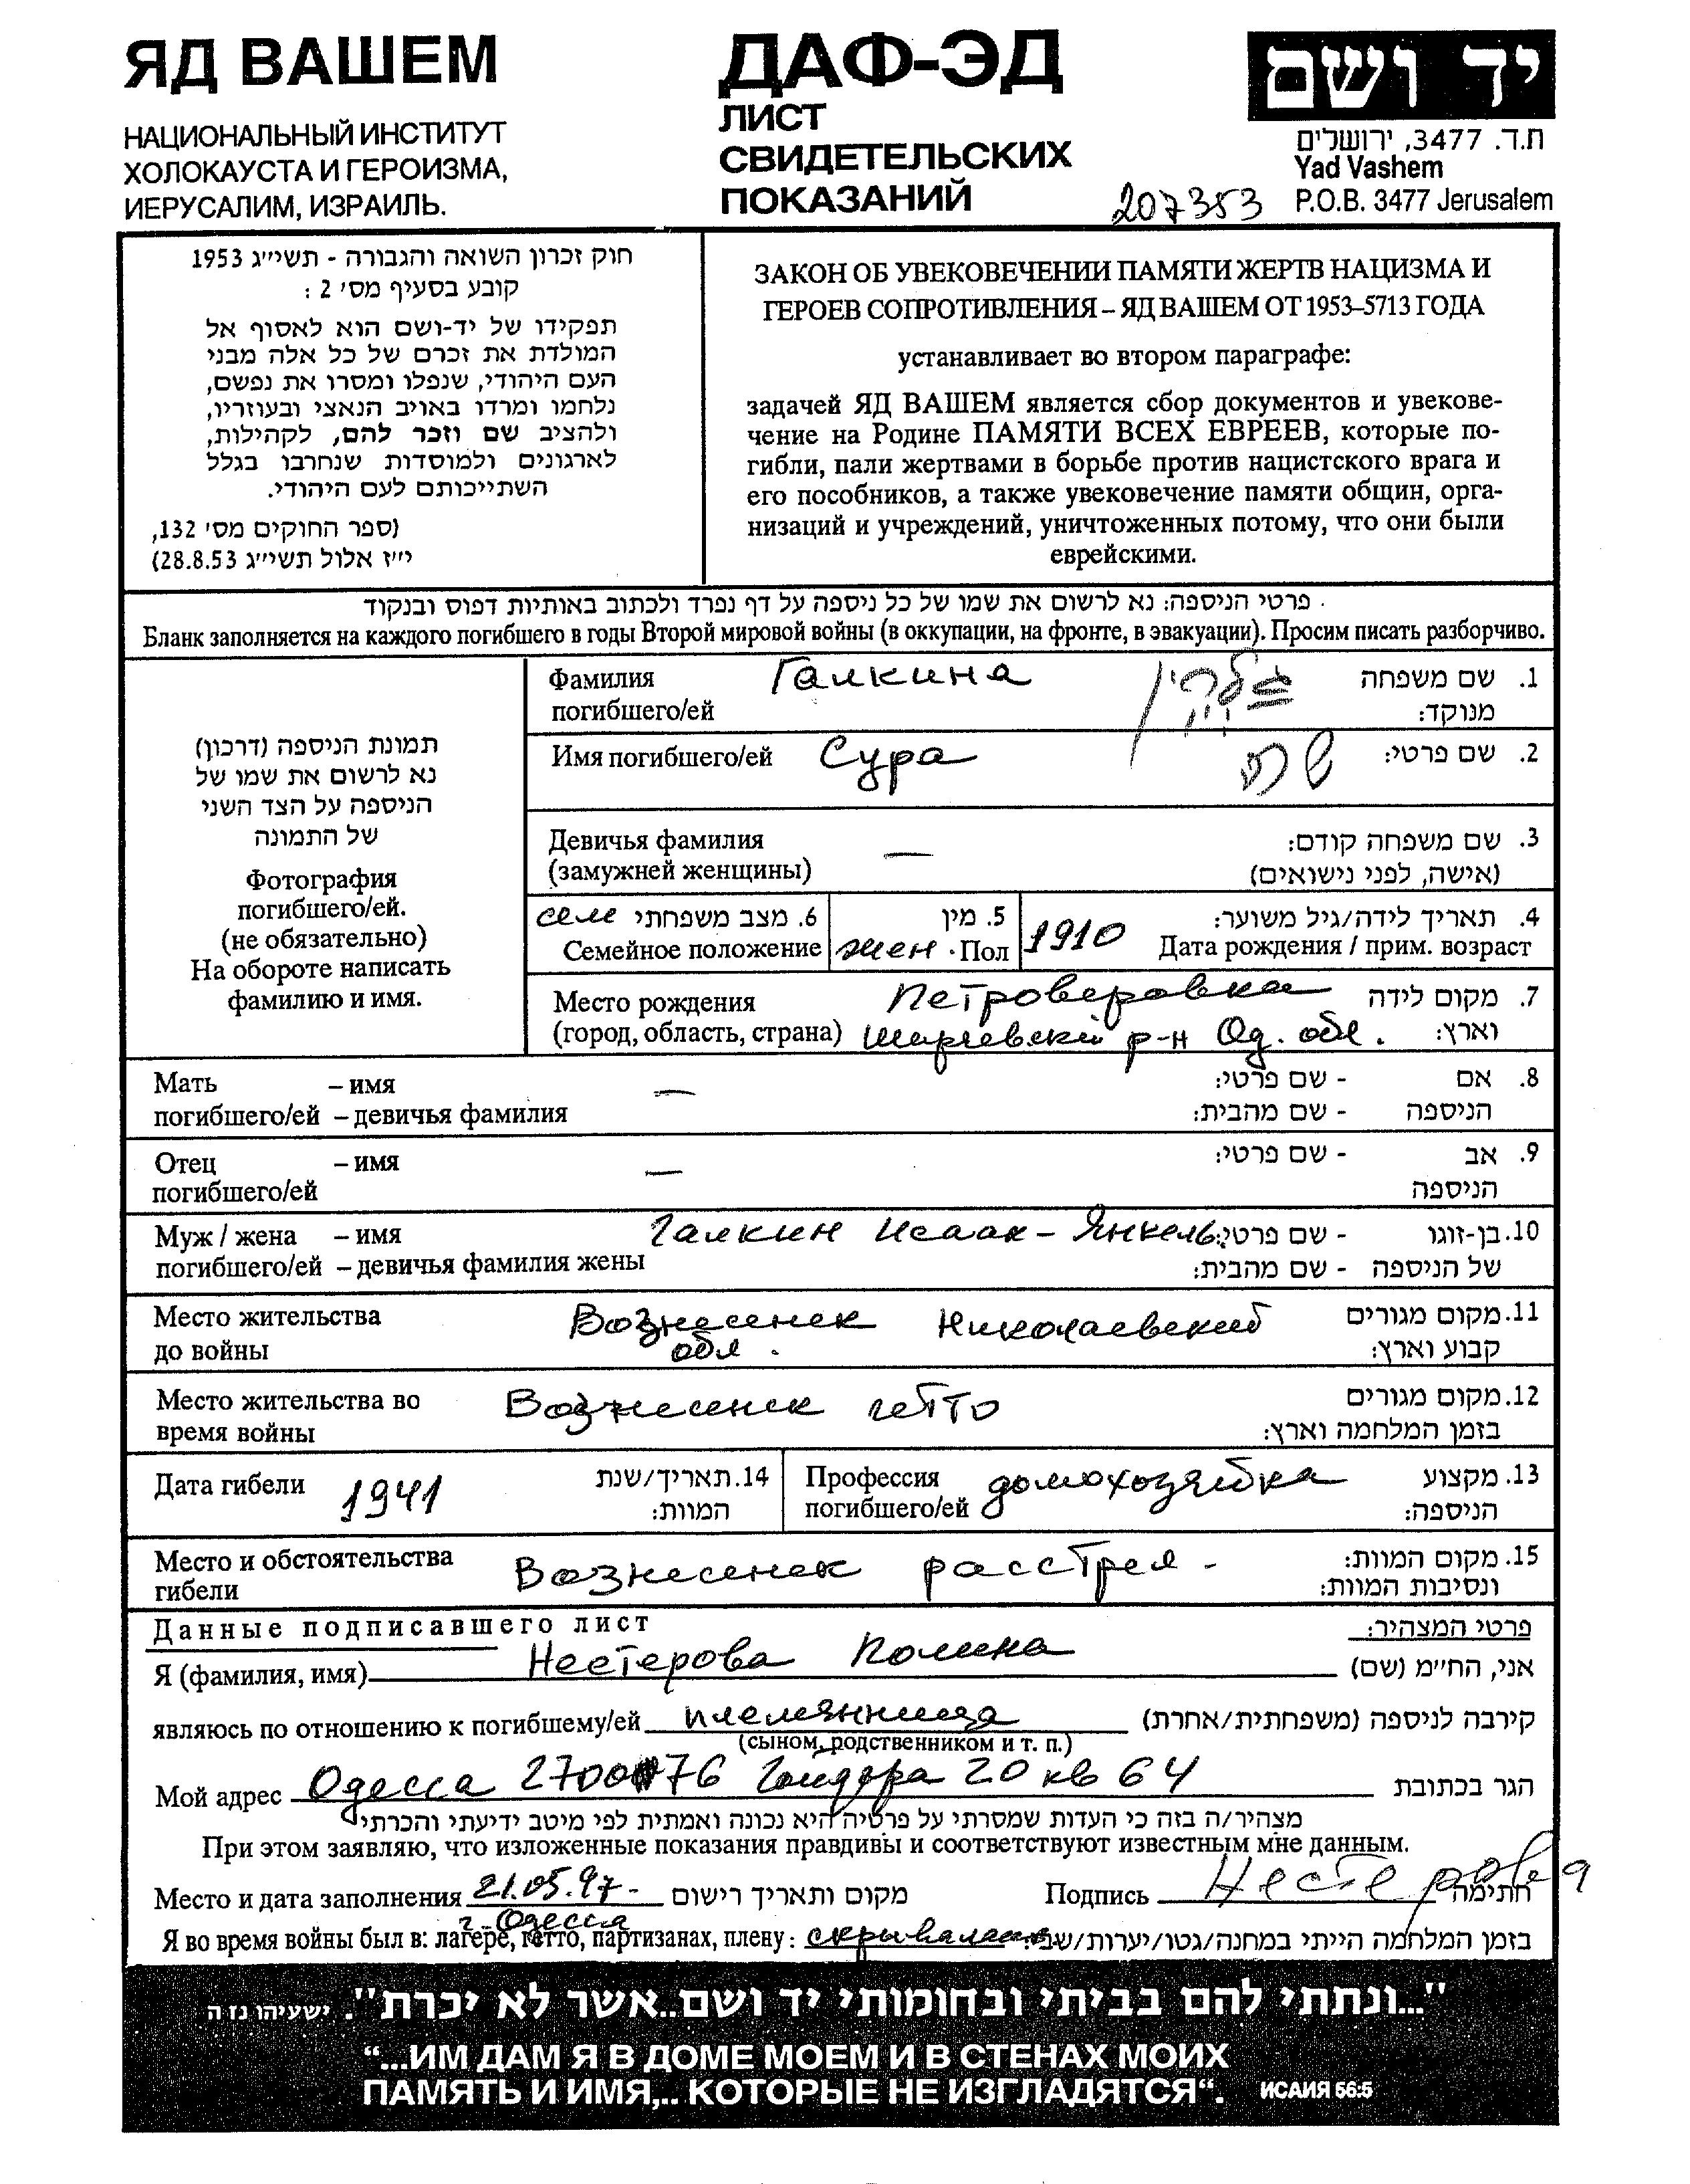 ЯД ВАШЕМ
НАЦИОНАЛЬНЫЙ ИНСТИТУТ
ХОЛОКАУСТА И ГЕРОИЗМА,
ИЕРУСАЛИМ, ИЗРАИЛЬ.
ДАФ-ЭД
ЛИСТ
СВИДЕТЕЛЬСКИХ
ПОКАЗАНИЙ
207353
יד ושם
ת.ד. 3477, ירושלים
Yad Vashem
P.O.B. 3477 Jerusalem
חוק זכרון השואה והגבורה - תשי״ג 1953
קובע בסעיף מס׳ 2 :
תפקידו של יד-ושם הוא לאסוף אל
המולדת את זכרם של כל אלה מבני
העם היהודי, שנפלו ומסרו את נפשם,
נלחמו ומרדו באויב הנאצי ובעוזריו,
ולהציב שם וזכר להם, לקהילות,
לארגונים ולמוסדות שנחרבו בגלל
השתייכותם לעם היהודי.
(ספר החוקים מס׳ 132,
י״ז אלול תשי״ג 28.8.53)
ЗАКОН ОБ УВЕКОВЕЧЕНИИ ПАМЯТИ ЖЕРТВ НАЦИЗМА И
ГЕРОЕВ СОПРОТИВЛЕНИЯ – ЯД ВАШЕМ ОТ 1953–5713 ГОДА
устанавливает во втором параграфе:
задачей ЯД ВАШЕМ является сбор документов и увекове-
чение на Родине ПАМЯТИ ВСЕХ ЕВРЕЕВ, которые по-
гибли, пали жертвами в борьбе против нацистского врага и
его пособников, а также увековечение памяти общин, орга-
низаций и учреждений, уничтоженных потому, что они были
еврейскими.
פרטי הניספה: נא לרשום את שמו של כל ניספה על דף נפרד ולכתוב באותיות דפוס ובנקוד
Бланк заполняется на каждого погибшего в годы Второй мировой войны (в оккупации, на фронте, в эвакуации). Просим писать разборчиво.
תמונת הניספה (דרכון)
נא לרשום את שמו של
הניספה על הצד השני
של התמונה
Фотография
погибшего/ей.
(не обязательно)
На обороте написать
фамилию и имя.
Фамилия Галкина גלקין 1. שם משפחה
погибшего/ей מנוקד:
Имя погибшего/ей Сура שרה 2. שם פרטי:
Девичья фамилия — 3. שם משפחה קודם:
(замужней женщины) (אישה, לפני נישואים)
сем 6. מצב משפחתי 5. מין 1910 4. תאריך לידה/גיל משוער:
Семейное положение жен. Пол Дата рождения / прим. возраст
Место рождения Петроверовка 7. מקום לידה
(город, область, страна) р-н Од. обл. וארץ:
Мать – имя — - שם פרטי: 8. אם
погибшего/ей – девичья фамилия - שם מהבית: הניספה
Отец – имя — - שם פרטי: 9. אב
погибшего/ей הניספה
Муж / жена – имя Галкин Исаак-Янкель - שם פרטי: 10. בן-זוגו
погибшего/ей – девичья фамилия жены - שם מהבית: של הניספה
Место жительства Вознесенск Николаевский 11. מקום מגורים
до войны обл. קבוע וארץ:
Место жительства во Вознесенск гетто 12. מקום מגורים
время войны בזמן המלחמה וארץ:
Дата гибели 1941 14. תאריך/שנת המוות:
Профессия домохозяйка 13. מקצוע
погибшего/ей הניספה:
Место и обстоятельства Вознесенск расстрел - 15. מקום המוות:
гибели ונסיבות המוות:
Данные подписавшего лист פרטי המצהיר:
Я (фамилия, имя) Нестерова Полина אני, הח״מ (שם)
являюсь по отношению к погибшему/ей племянница קירבה לניספה (משפחתית/אחרת)
(сыном, родственником и т. п.)
Мой адрес Одесса 270076 20 кв 64 הגר בכתובת
מצהיר/ה בזה כי העדות שמסרתי על פרטיה היא נכונה ואמתית לפי מיטב ידיעתי והכרתי
При этом заявляю, что изложенные показания правдивы и соответствуют известным мне данным.
Место и дата заполнения 21.05.97- מקום ותאריך רישום Подпись Нестерова חתימה
г. Одесса
Я во время войны был в: лагере, гетто, партизанах, плену: скрывалась בזמן המלחמה הייתי במחנה/גטו/יערות/שבי:
"...ונתתי להם בביתי ובחומותי יד ושם...אשר לא יכרת". ישעיהו נז ה
“...ИМ ДАМ Я В ДОМЕ МОЕМ И В СТЕНАХ МОИХ
ПАМЯТЬ И ИМЯ,.. КОТОРЫЕ НЕ ИЗГЛАДЯТСЯ“. ИСАИЯ 56:5